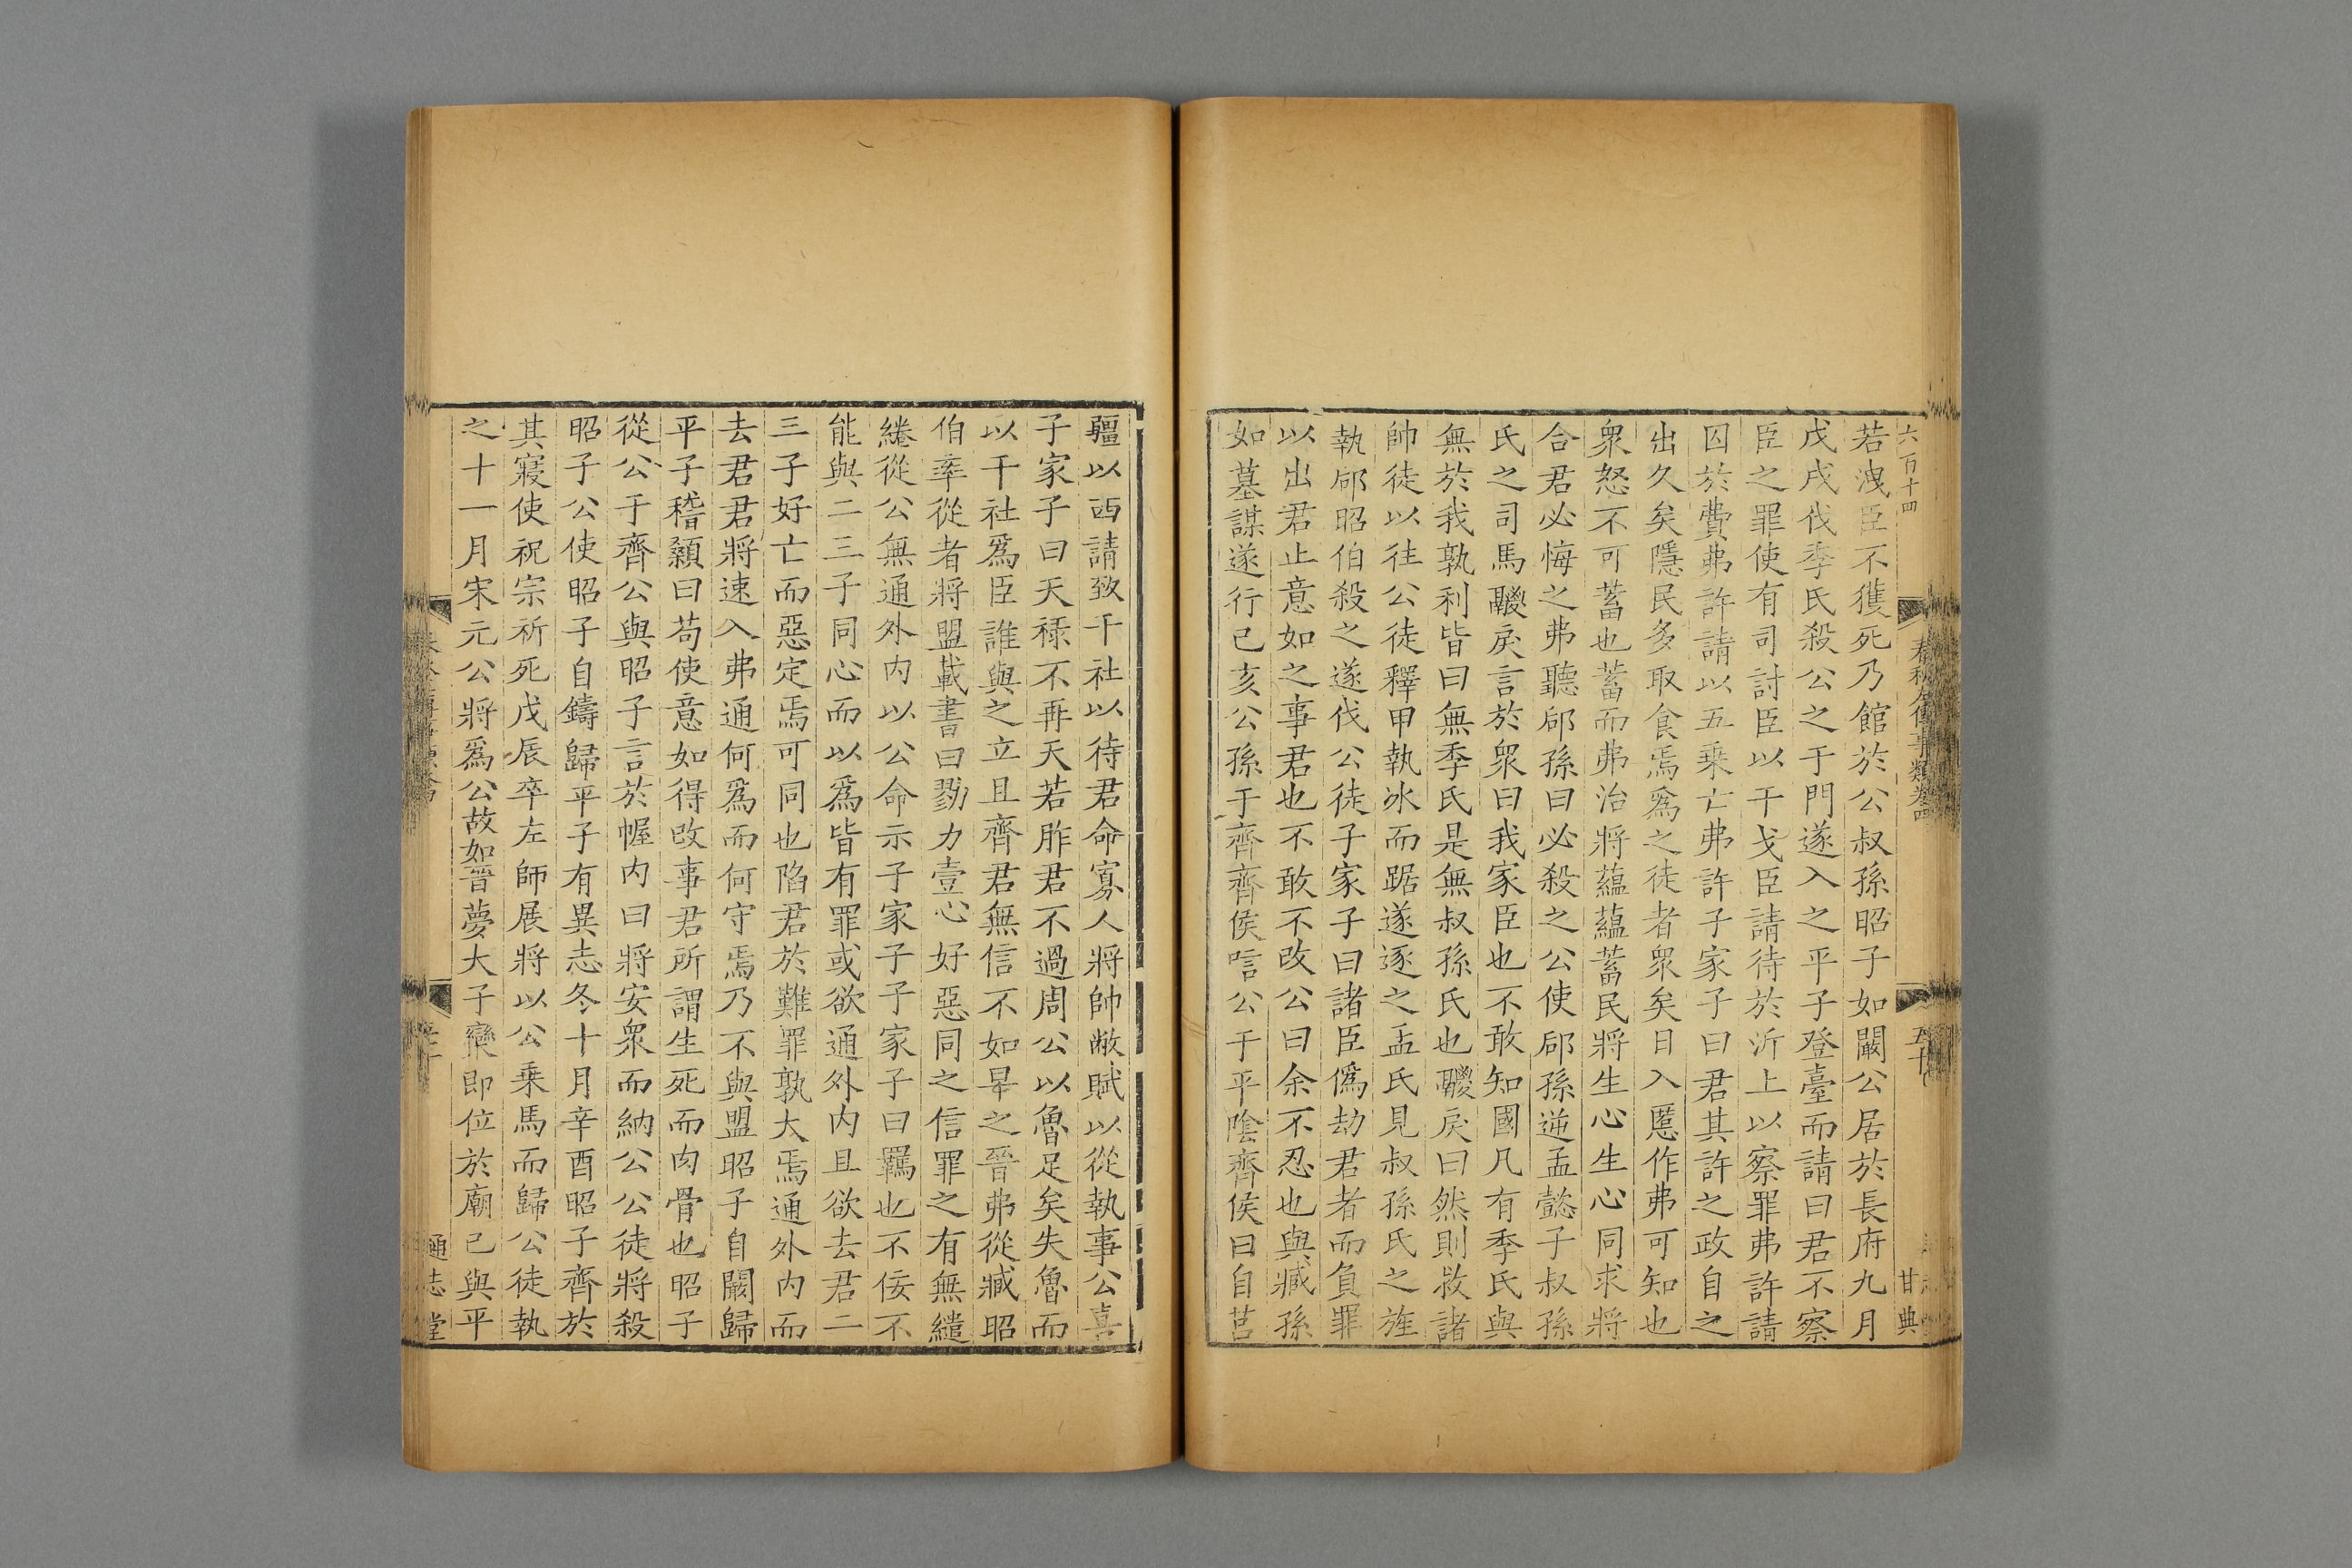 六百十四
若洩臣不獲死乃館於公叔孫昭子如闞公居於長府九月
戊戌伐季氏殺公之于門遂入之平子登臺而請曰君不察
臣之罪使有司討臣以干戈臣請待於沂上以察罪弗許請
囚於費弗許請以五乗亡弗許子家子曰君其許之政自之
出久矣隱民多取食焉爲之徒者衆矣日入慝作弗可知也
衆怒不可蓄也蓄而弗治將蘊蘊蓄民將生心生心同求將
合君必悔之弗聽郈孫曰必殺之公使郈孫逆孟懿子叔孫
氏之司馬鬷戾言於衆曰我家臣也不敢知國凡有季氏與
無於我孰利皆曰無季氏是無叔孫氏也鬷戾曰然則救諸
帥徒以往公徒釋甲執冰而踞遂逐之孟氏見叔孫氏之旌
執郈昭伯殺之遂伐公徒子家子曰諸臣僞劫君者而負罪
以出君止意如之事君也不敢不改公曰余不忍也與臧孫
如墓謀遂行己亥公孫于齊齊侯唁公于平陰齊侯曰自莒
甘典
疆以西請致千社以待君命寡人將帥敝賦以從執事公喜
子家子曰天祿不再天若胙君不過周公以魯足矣失魯而
以千社爲臣誰與之立且齊君無信不如早之晉弗從臧昭
伯率從者將盟載書曰勠力壹心好惡同之信罪之有無繾
綣從公無通外内以公命示子家子子家子曰羈也不佞不
能與二三子同心而以爲皆有罪或欲通外内且欲去君二
三子好亡而惡定焉可同也陷君於難罪孰大焉通外内而
去君君將速入弗通何爲而何守焉乃不與盟昭子自闞歸
平子稽顙曰苟使意如得改事君所謂生死而肉骨也昭子
從公于齊公與昭子言於幄内曰將安衆而納公公徒將殺
昭子公使昭子自鑄歸平子有異志冬十月辛酉昭子齊於
其寢使祝宗祈死戊辰卒左師展將以公乗馬而歸公徒執
之十一月宋元公將爲公故如晉夢大子欒即位於廟己與平
通志堂